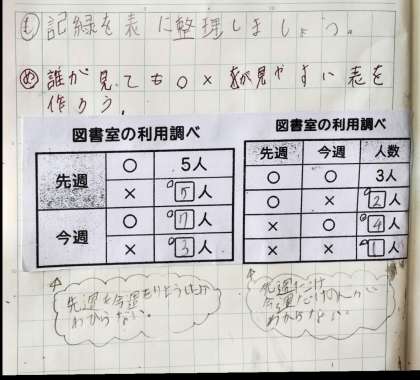 も 記録を表に整理しましょう。
め 誰が見ても○×が見やすい表を
作ろう。
図書室の利用調べ
先週 ○ 5人
× 5人
今週 ○ 7人
× 3人
図書室の利用調べ
先週 今週 人数
○ ○ 3人
○ × 2人
× ○ 4人
× × 1人
先週も今週もりようした
わからない。
先週だけ
今週だけの人が
わからない